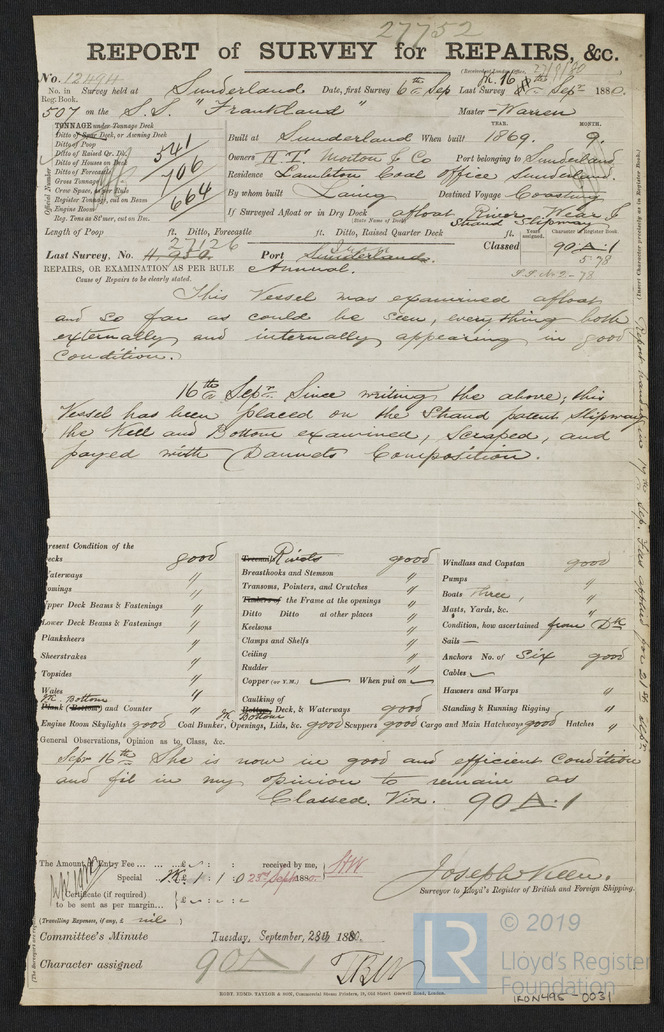 27752
REPORT of SURVEY for REPAIRS, &c.
No. 12494
No. in Survey held at Sunderland Date, first Survey 6th Sep Last Survey 16th Sepr 1880.
Reg. Book.
507 on the S.S. "Frankland" Master Warren
TONNAGE under Tonnage Deck
Ditto of Spar Deck, or Awning Deck
Ditto of Poop
Ditto of Raised Qr. Dk.
Ditto of Houses on Deck
Ditto of Forecastle
Gross Tonnage
Crew Space, as per Rule
Register Tonnage, cut on Beam
Engine Room
Reg. Tons as St'mer, cut on Bm.
541
706
664
Official Number
YEAR. MONTH.
Built at Sunderland When built 1869. 9.
Owners H. T. Morton & Co Port belonging to Sunderland
Residence Lambton Coal Office Sunderland.
By whom built Laing Destined Voyage Coasting
If Surveyed Afloat or in Dry Dock afloat River Wear &
(State Name of Dock.) Strand Slipway
Length of Poop ft. Ditto, Forecastle ft. Ditto, Raised Quarter Deck ft.
Years assigned. Character in Register Book.
27126
Last Survey, No. Port Sunderland. Classed 90 A.1
5,78
REPAIRS, OR EXAMINATION AS PER RULE Annual.
Cause of Repairs to be clearly stated.
This Vessel was examined afloat
and so far as could be seen, everything both
externally and internally appearing in good
Condition.
16th Sepr. Since writing the above, this
Vessel has been placed on the Strand patent Slipway
the Keel and Bottom examined, Scraped, and
payed with Composition.
Present Condition of the
Decks good
Waterways "
Comings "
Upper Deck Beams & Fastenings "
Lower Deck Beams & Fastenings "
Planksheers "
Sheerstrakes "
Topsides "
Wales "
Bottom
Plank (Bottom) and Counter "
Treenails Rivets good
Breasthooks and Stemson "
Transoms, Pointers, and Crutches "
Timbers of the Frame at the openings "
Ditto Ditto at other places "
Keelsons "
Clamps and Shelfs "
Ceiling "
Rudder "
Copper (or Y.M.) When put on
Caulking of
Bottom, Deck, & Waterways good
Bottom
Windlass and Capstan good
Pumps "
Boats three, "
Masts, Yards, &c. "
Condition, how ascertained from Dk
Sails
Anchors No. of Six good
Cables
Hawsers and Warps "
Standing & Running Rigging "
Engine Room Skylights good Coal Bunker, Openings, Lids, &c. good Scuppers good Cargo and Main Hatchways good Hatches "
General Observations, Opinion as to Class, &c.
Sepr 16th She is now in good and efficient Condition
and fit in my opinion to remain as
Classed. Viz. 90 A.1
The Amount of Entry Fee ... £ : : received by me,
Special 1 : 1 : 0 23rd Septr 1880.
Certificate (if required)
to be sent as per margin...
(Travelling Expenses, if any, £ nil )
Joseph Keen.
Surveyor to Lloyd's Register of British and Foreign Shipping.
Committee's Minute Tuesday, September, 28th 1880.
Character assigned 90 A 1
ROBT. EDMD. TAYLOR & SON, Commercial Steam Printers, 19, Old Street Goswell Road, London.
(Insert Character precisely as in Register Book.)
LR
© 2019
Lloyd's Register
Foundation
IRON495-0031